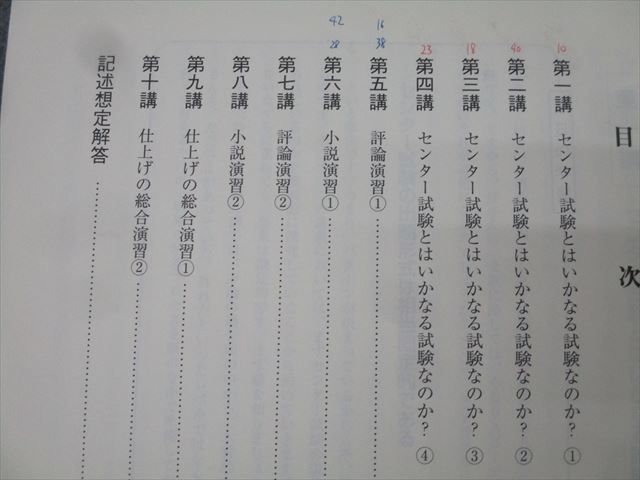 目次
10
第一講 センター試験とはいかなる試験なのか？①
40
第二講 センター試験とはいかなる試験なのか？②
18
第三講 センター試験とはいかなる試験なのか？③
23
第四講 センター試験とはいかなる試験なのか？④
16
38
第五講 評論演習①……………………
42
28
第六講 小説演習①……………………
第七講 評論演習②……………………
第八講 小説演習②……………………
第九講 仕上げの総合演習①……………………
第十講 仕上げの総合演習②……………………
記述想定解答……………………